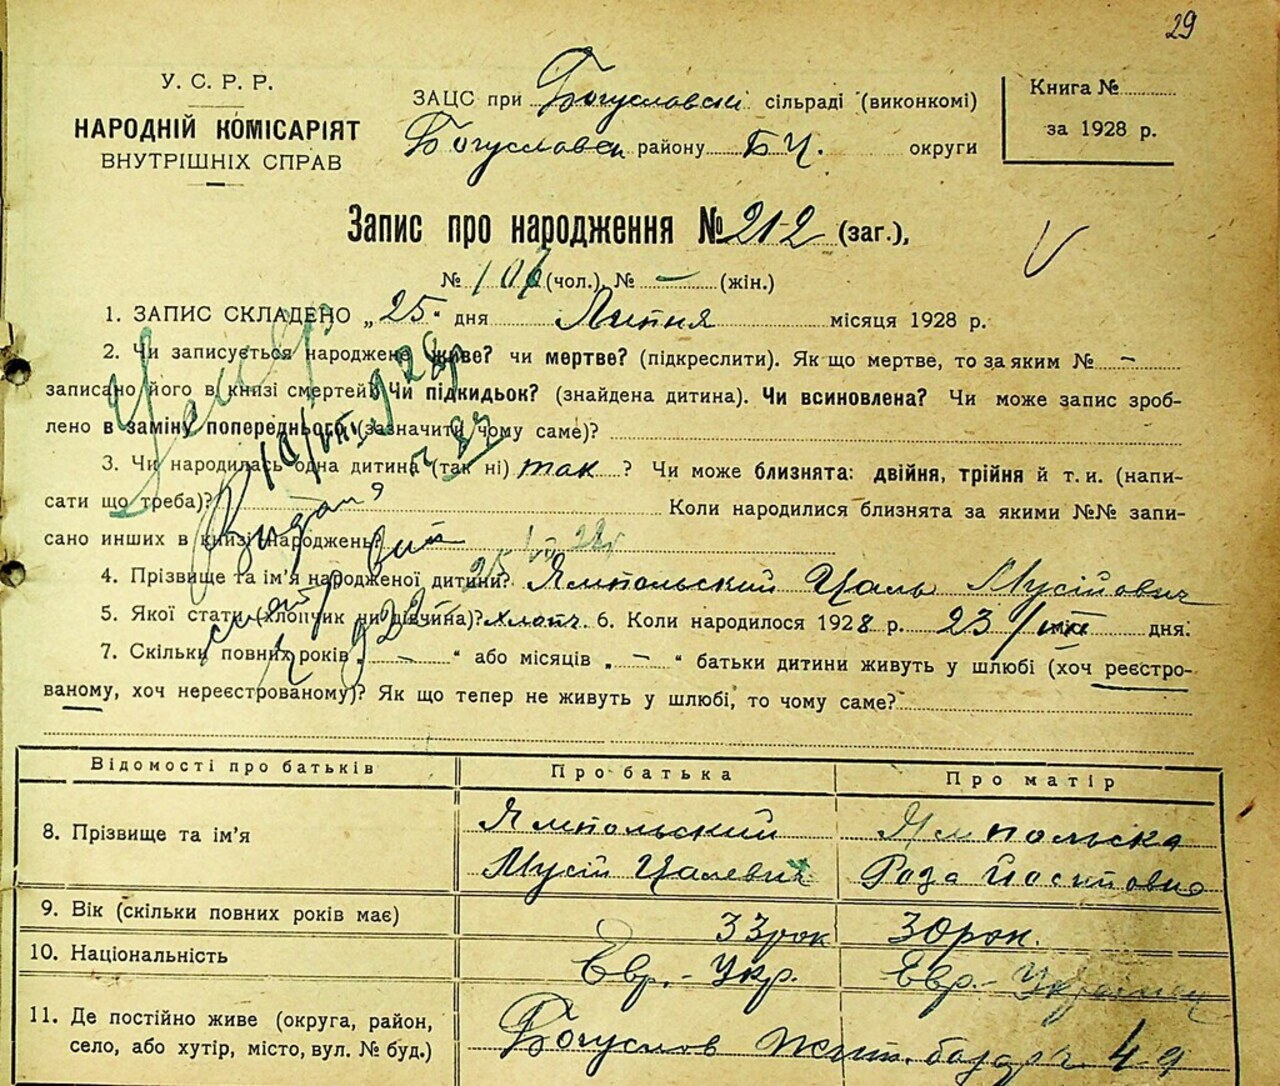 29
У. С. Р. Р.
НАРОДНІЙ КОМІСАРІЯТ
ВНУТРІШНІХ СПРАВ
ЗАЦС при Богуславскі сільраді (виконкомі)
Богуславск району Б Ц. округи
Книга №
за 1928 р.
Запис про народження № 212 (заг.),
№ 106 (чол.), № — (жін.)
1. ЗАПИС СКЛАДЕНО „25“ дня Липня місяця 1928 р.
2. Чи записується народжене живе? чи мертве? (підкреслити). Як що мертве, то за яким № —
записано його в книзі смертей? Чи підкидьок? (знайдена дитина). Чи всиновлена? Чи може запис зроб-
лено в заміну попереднього (зазначити чому саме)?
3. Чи народилась одна дитина (так ні) так ? Чи може близнята: двійня, трійня й т. и. (напи-
сати що треба)? Коли народилися близнята за якими №№ запи-
сано инших в книзі народжень?
4. Прізвище та ім’я народженої дитини? Ямпольский Цаль Мусійович
5. Якої стати (хлопчик чи дівчина)? хлопч. 6. Коли народилося 1928 р. 23/VII дня.
7. Скільки повних років „ — “ або місяців „ — “ батьки дитини живуть у шлюбі (хоч реєстро-
ваному, хоч нереєстрованому)? Як що тепер не живуть у шлюбі, то чому саме?
Відомості про батьків Про батька Про матір
8. Прізвище та ім’я Ямпольский Ямпольска
Мусій Цалевич Роза Йосиповно
9. Вік (скільки повних років має) 33 рок 30 рок.
10. Національність Евр. - Укр. Евр. -
11. Де постійно живе (округа, район,
село, або хутір, місто, вул. № буд.) Богуслов 49